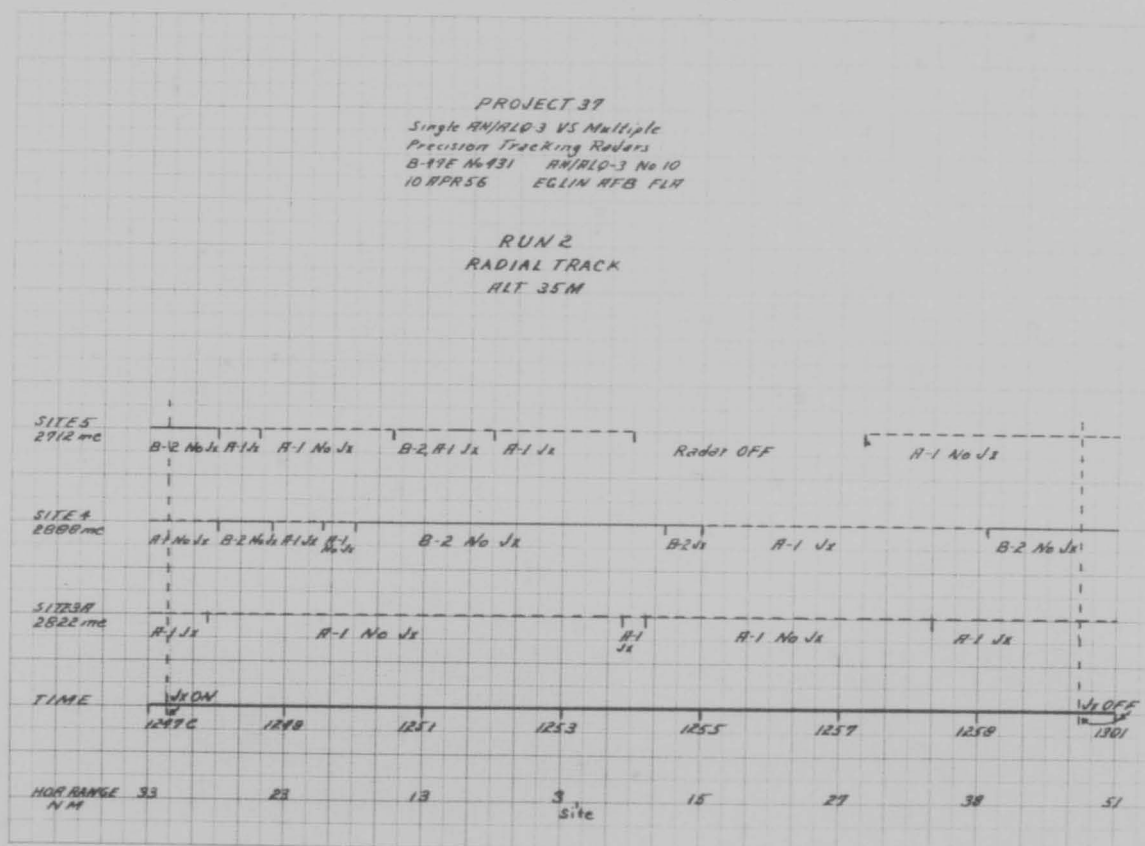 PROJECT 37
Single AN/ALQ-3 VS Multiple
Precision Tracking Radars
B-47E No 431 AN/ALQ-3 No 10
10 APR 56 EGLIN AFB FLA
RUN 2
RADIAL TRACK
ALT 35M
SITE 5
2712 mc
B-2 No Jx A-1 Jx A-1 No Jx B-2, A-1 Jx A-1 Jx Radar OFF A-1 No Jx
SITE 4
2888 mc
A-1 No Jx B-2 No Jx A-1 Jx A-1 No Jx B-2 No Jx B-2 Jx A-1 Jx B-2 No Jx
SITE 3A
2822 mc
A-1 Jx A-1 No Jx A-1 Jx A-1 No Jx A-1 Jx
TIME Jx ON Jx OFF
1247 C 1248 1251 1253 1255 1257 1258 1301
HOR RANGE 33 23 13 3 15 27 38 51
NM Site